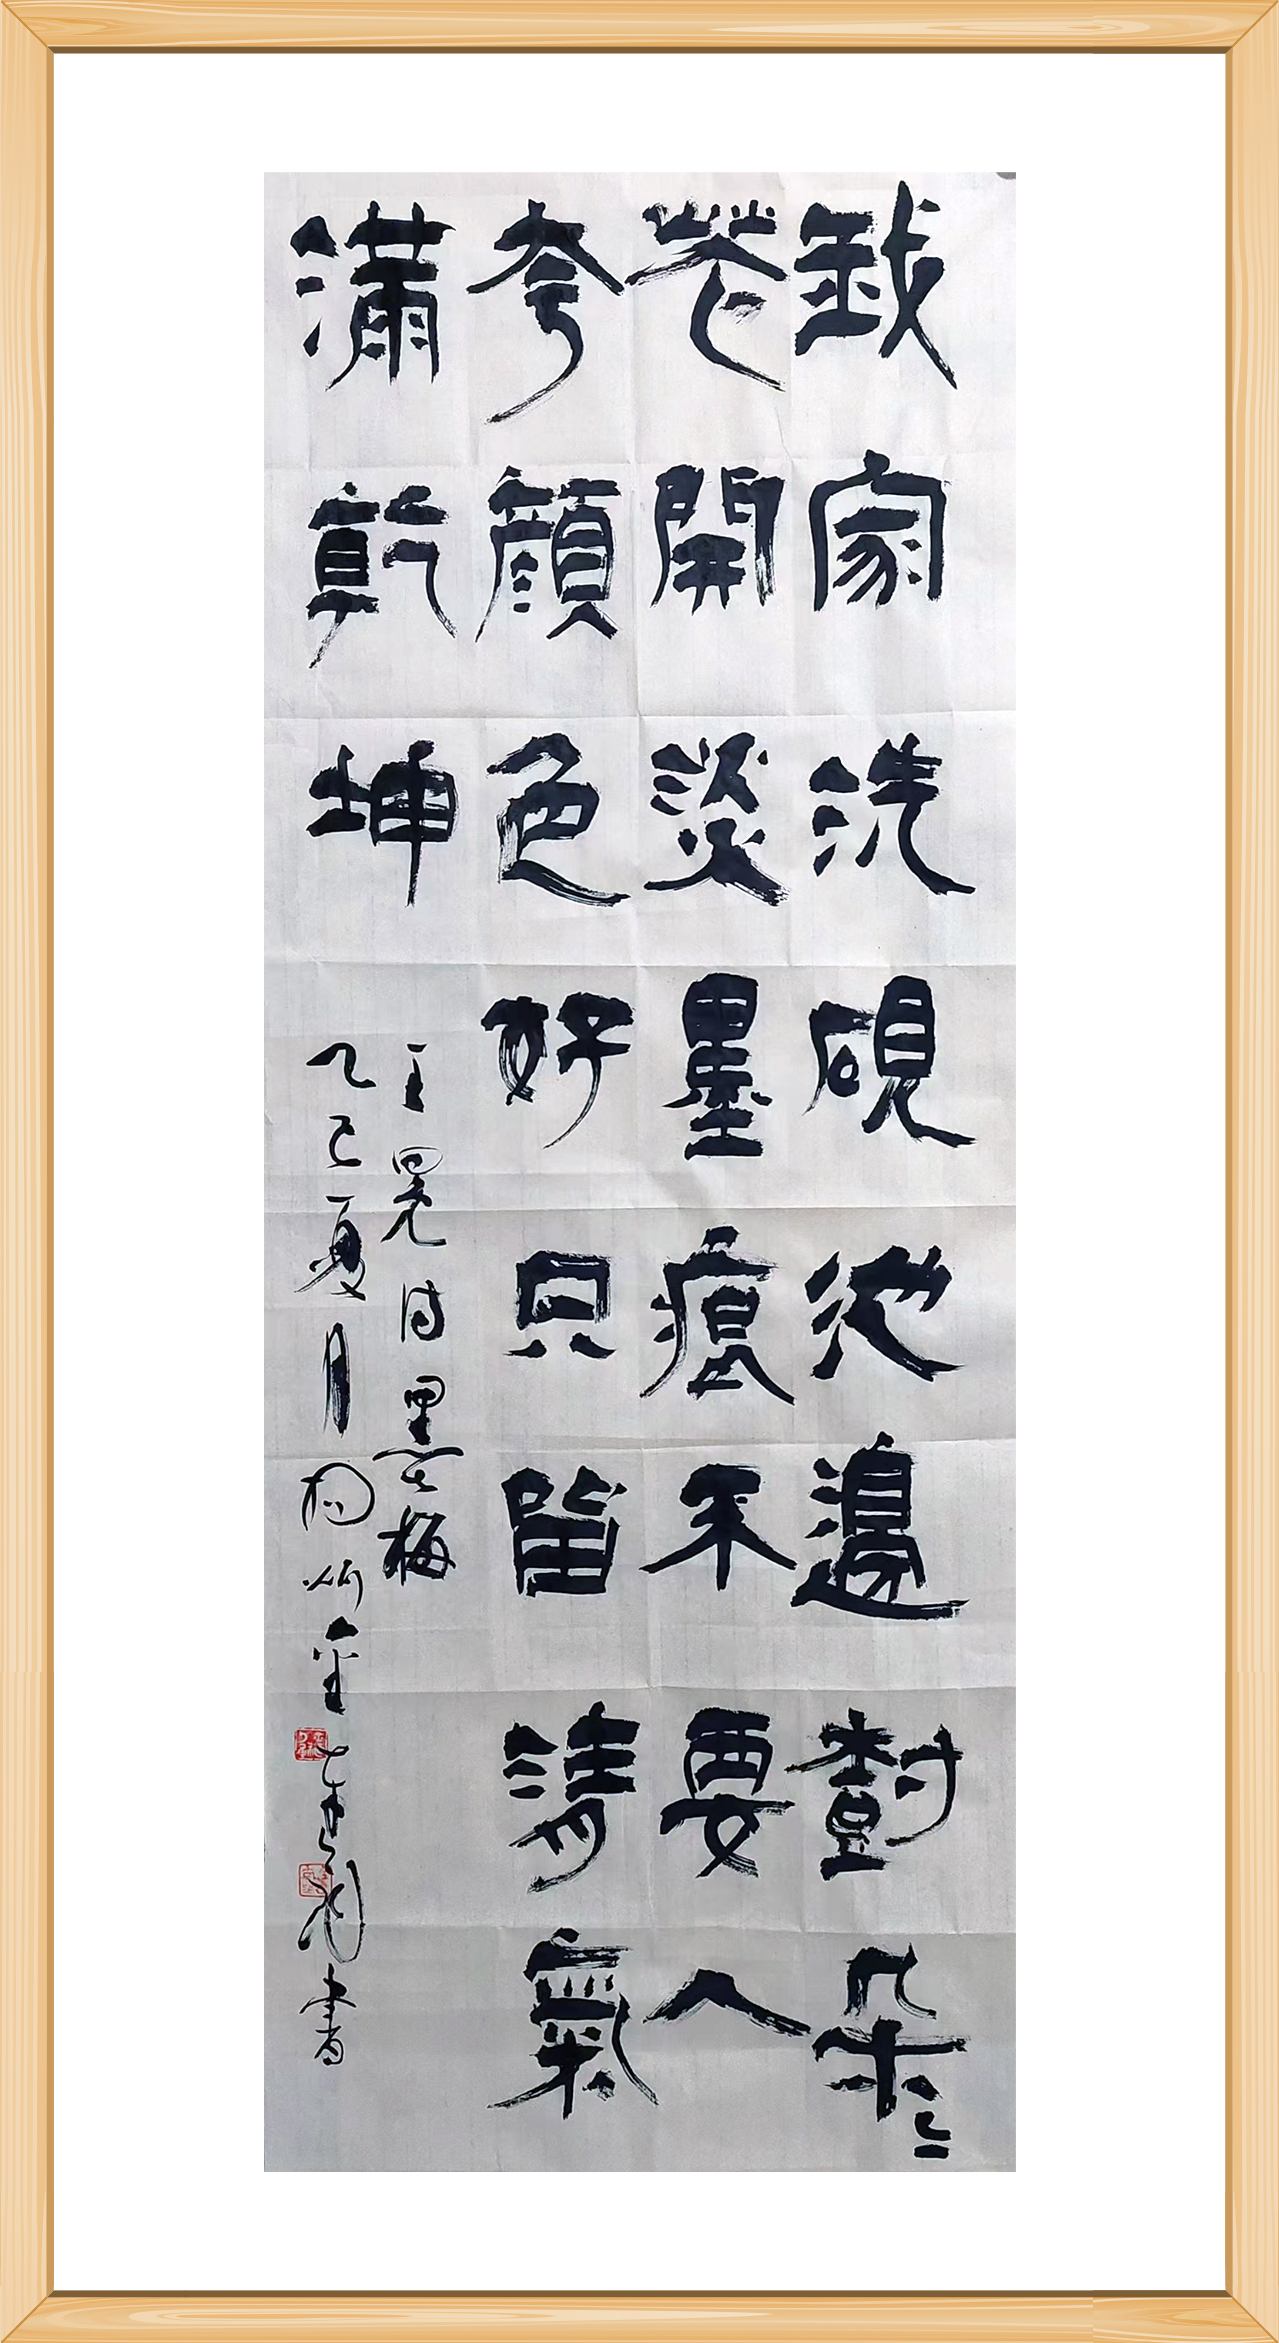 我家洗硯池邊樹朶々
花開淡墨痕不要人
夸顏色好只留清氣
滿乾坤
王冕诗墨梅
乙巳夏月書